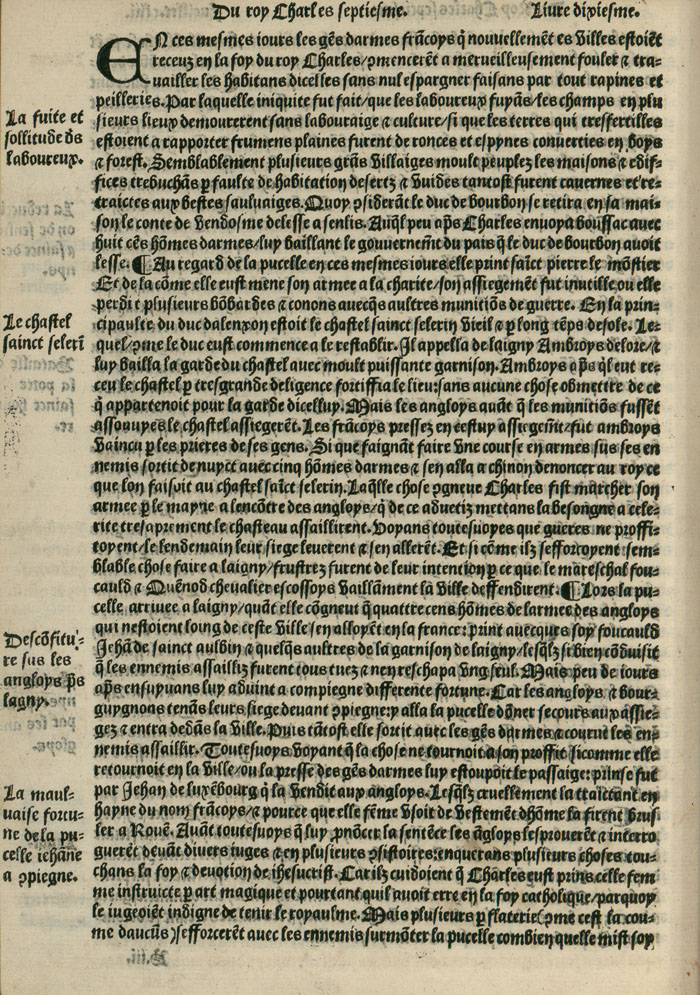 Du roy Charles septiesme. Livre dixiesme.
EN ces mesmes iours les gẽs darmes frãcoys q̃ nouuellemẽt es Villes estoiẽt
receuz en la foy du roy Charles/ ꝯmencerẽt a merueilleusement fouler ⁊ tra⸗
uailler les habitans dicelles sans nul espargner faisans par tout rapines et
peilleries. Par laquelle iniquite fut fait/ que les laboureux fuyãs/ les champs en plu
sieurs lieux demourerent sans labouraige ⁊ culture/ si que les terres qui tresfertilles
estoient a rapporter frumens plaines furent de ronces et espynes conuerties en boys
⁊ forest. Semblablement plusieurs grãs Villaiges moult peuplez les maisons ⁊ edif⸗
fices trebuchãs ꝑ faulte de habitation desertz ⁊ Vuides tantost furent cauernes et re⸗
traictes aux bestes sauluaiges. Quoy ꝯsiderãt le duc de bourbon se retira en sa mai⸗
son le conte de Vendosme delesse a senlis. Auq̃l peu ap̃s Charles enuoya boussac auec
huit cẽs hõmes darmes/ luy baillant le gouuernemẽt du pais q̃ le duc de bourbon auoit
lesse. ¶ Au regard de la pucelle en ces mesmes iours elle print saĩct pierre le mõstier
Et de la cõme elle eust mene son armee a la charite/ son assiegemẽt fut inutille ou elle
perdit plusieurs bõbardes ⁊ conons auecq̃s aultres munitiõs de guerre. En la prin⸗
cipaulte du duc dalenxon estoit le chastel sainct selerin Vieil ⁊ ꝑ long tẽps desole. Le⸗
quel/ ꝯme le duc eust commence a le restablir. Il appella de laigny Ambroys delore/ ⁊
luy bailla la garde du chastel auec moult puissante garnison. Ambroys ap̃s q̃l eut re⸗
ceu le chastel ꝑ tresgrande deligence fortiffia le lieu: sans aucune chose obmettre de ce
q̃ appartenoit pour la garde dicelluy. Mais les angloys auãt q̃ les munitiõs fussẽt
assouuyes le chastel assiegerẽt. Les frãcoys pressez en cestuy assiegemẽt/ fut ambroys
Vaincu ꝑ les prieres de ses gens. Si que faignãt faire Vne course en armes sus ses en
nemis sortit de nuyct auec cinq hõmes darmes ⁊ sen alla a chinon denoncer au roy ce
que lon faisoit au chastel saĩct selerin. Laq̃lle chose ꝯgneue Charles fist marcher son
armee ꝑ le mayne a lencõtre des angloys/ q̃ de ce aduetiz mettans la besongne a cele⸗
rite tresaprement le chasteau assaillirent. Voyans toutesuoyes que gueres ne proffi⸗
toyent/ le lendemain leur siege leuerent ⁊ sen allerẽt. Et si cõme ilz sefforcoyent sem⸗
blable chose faire a laigny/ frustrez furent de leur intention ꝑ ce que le mareschal fou⸗
cauld ⁊ Quẽnod cheualier escossoys Vaillãment la Ville deffendirent. ¶ Lors la pu⸗
celle arriuee a laigny/ quãt elle cõgneut q̃ quattre cens hõmes de larmee des angloys
qui nestoient loing de ceste Ville/ sen alloyẽt en la france: print auecques soy foucauld
Jehã de sainct aulbin ⁊ quelq̃s aultres de la garnison de laigny/ lesq̃lz si bien cõduisit
q̃ les ennemis assailliz furent tous tuez ⁊ nen reschapa Vng seul. Mais peu de iours
ap̃s ensuyuans luy aduint a compiegne differente fortune. Car les angloys ⁊ bour⸗
guygnons tenãs leurs siege deuant ꝯpiegne: y alla la pucelle dõner secours aux assie⸗
gez ⁊ entra dedãs la Ville. Puis tãtost elle sortit auec les gẽs darmes ⁊ courut les en⸗
nemis assaillir. Toutesuoys Voyant q̃ la chose ne tournoit a son proffit sicomme elle
retournoit en la Ville/ ou la presse des gẽs darmes luy estoupoit le passaige: prinse fut
par Jehan de luxẽbourg q̃ la Vendit aux angloys. Lesq̃lz cruellement la traictant en
hayne du nom frãcoys/ ⁊ pource que elle fẽme Vsoit de Vestemẽt dhõme la firent brus
ler a Rouẽ. Auãt toutesuoys q̃ luy ꝓnõcer la sentẽce les ãgloys lesprouerẽt ⁊ interro
guerẽt deuãt diuers iuges ⁊ en plusieurs ꝯsistoires: enquerans plusieurs choses tou⸗
chans la foy ⁊ deuotion de ihesucrist. Car ilz cuidoient q̃ Charles eust prins celle fem
me instruicte ꝑ art magique et pourtant quil auoit erre en la foy catholique/ parquoy
le iugeoiẽt indigne de tenir le royaulme. Mais plusieurs ꝑ flaterie (ꝯme cest la cou⸗
me daucũs) sefforcerẽt auec les ennemis surmõter la pucelle combien quelle mist soy
La fuite et
sollitude ds
laboureux.
Le chastel
sainct selerĩ
Descõfitu⸗
re sus les
angloys p̃s
lagny.
La maul⸗
uaise fortu⸗
ne de la pu⸗
celle iehãne
a ꝯpiegne.